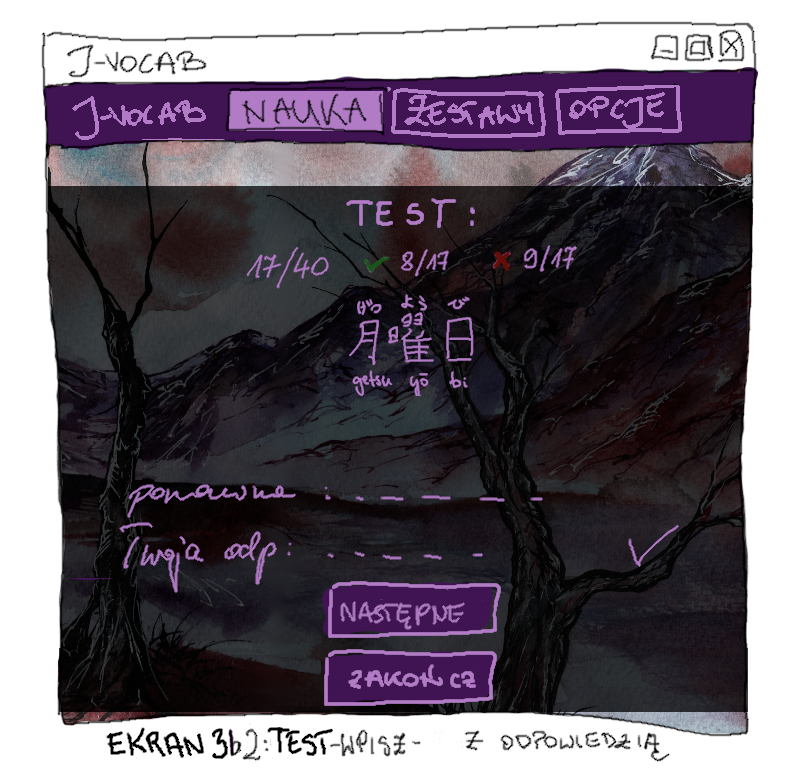 J-VOCAB
J-VOCAB NAUKA ZESTAWY OPCJE
TEST:
17/40 ✓ 8/17 ✗ 9/17
げつ よう び
月曜日
getsu yō bi
poprawne : . _ _ _ _ _
Twoja odp: . _ _ _ _ ✓
NASTĘPNE
ZAKOŃCZ
EKRAN 3b2: TEST-WPISZ- Z ODPOWIEDZIĄ